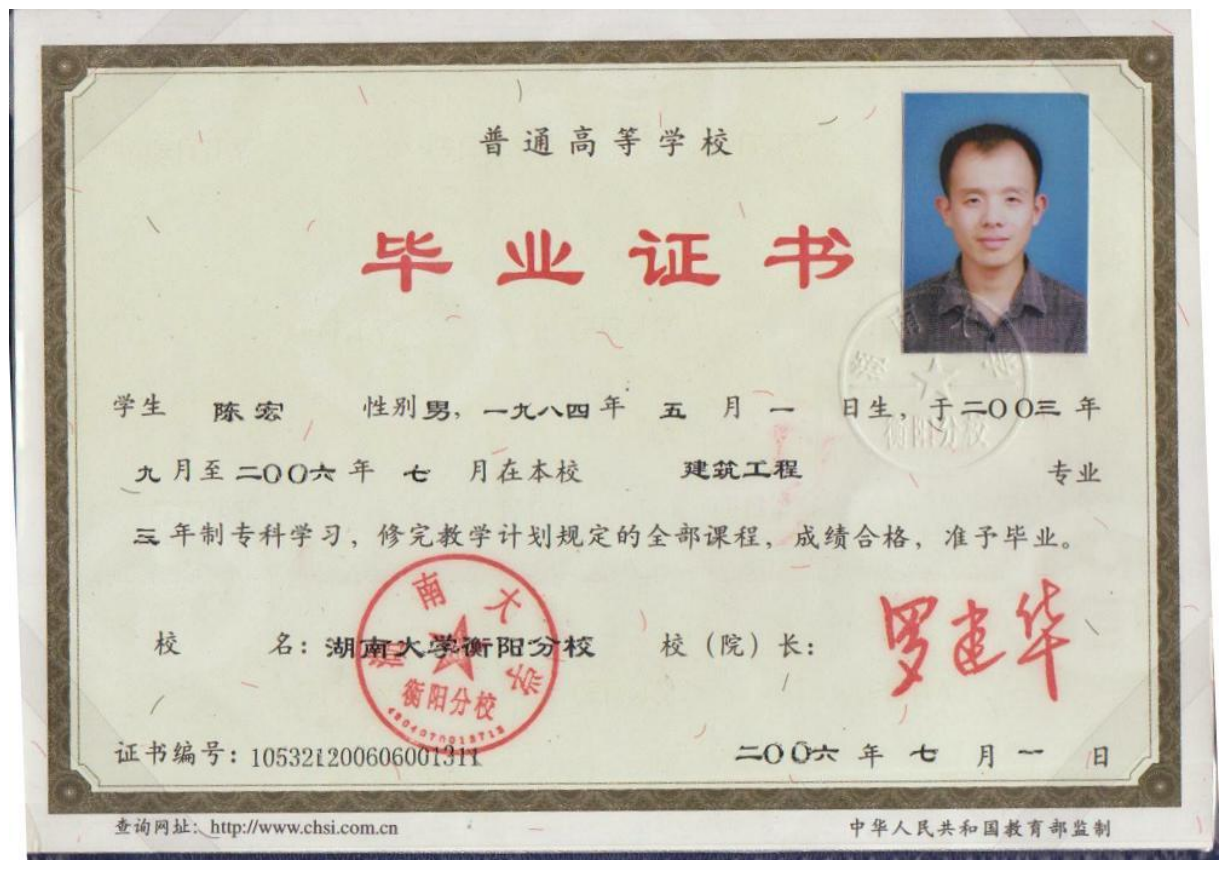 普通高等学校
毕业证书
学生 陈宏 性别男，一九八四年 五 月 一 日生，于二〇〇三年
九月至二〇〇六年 七 月在本校 建筑工程 专业
三年制专科学习，修完教学计划规定的全部课程，成绩合格，准予毕业。
校 名：湖南大学衡阳分校 校（院）长：罗建华
湖南大学
衡阳分校
证书编号：105321200606001311 二〇〇六年 七 月 一 日
查询网址：http://www.chsi.com.cn 中华人民共和国教育部监制
湖南大学
衡阳分校